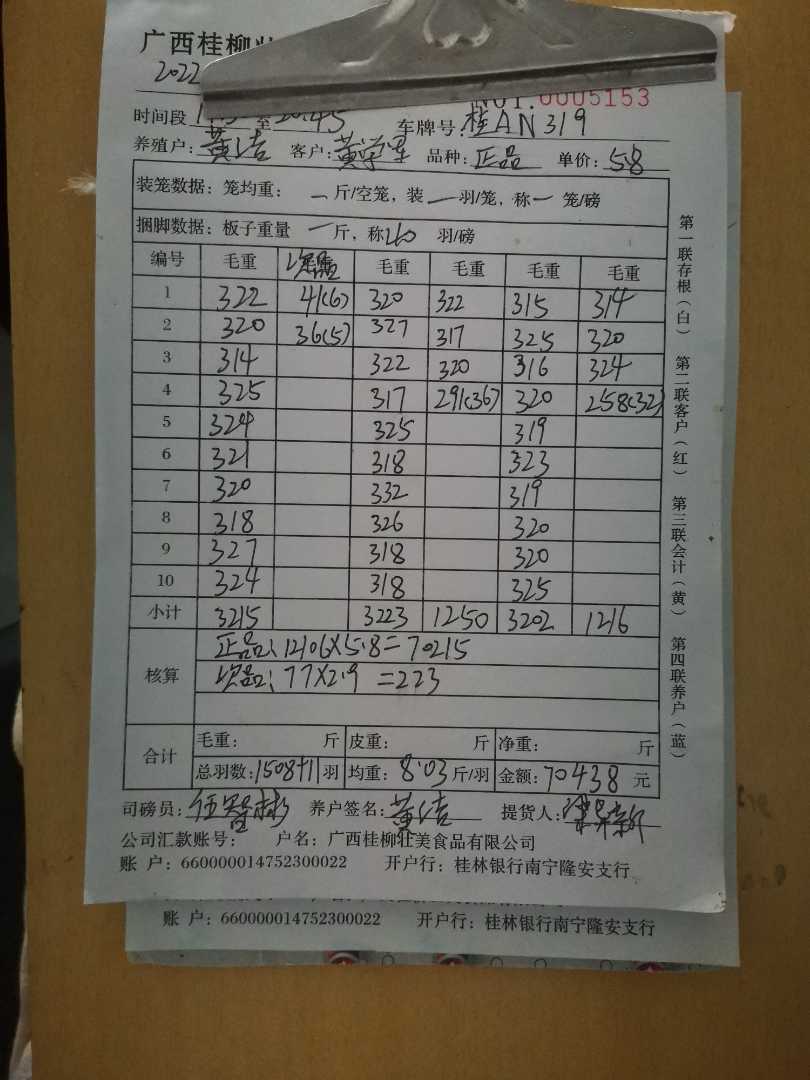 广西桂柳壮
2022
NO1.0005153
时间段 至 20:45 车牌号:桂AN319
养殖户:黄洁 客户: 品种:正品 单价:5.8
装笼数据:笼均重: 一 斤/空笼,装 一 羽/笼,称 一 笼/磅
捆脚数据:板子重量 一 斤,称 40 羽/磅
编号 毛重 次品 毛重 毛重 毛重 毛重
1 322 41(6) 320 322 315 314
2 320 36(5) 327 317 325 320
3 314 322 320 316 324
4 325 317 291(36) 320 258(32)
5 324 325 319
6 321 318 323
7 320 332 319
8 318 326 320
9 327 318 320
10 324 318 325
小计 3215 3223 1250 3202 1216
核算 正品:12106×5.8=70215
次品:77×2.9=223
合计 毛重: 斤 皮重: 斤 净重: 斤
总羽数:1508+11羽 均重:8.03斤/羽 金额:70438元
司磅员:伍智彬 养户签名:黄洁 提货人:
公司汇款账号: 户名:广西桂柳壮美食品有限公司
账 户:660000014752300022 开户行:桂林银行南宁隆安支行
账 户:660000014752300022 开户行:桂林银行南宁隆安支行
第一联存根(白) 第二联客户(红) 第三联会计(黄) 第四联养户(蓝)